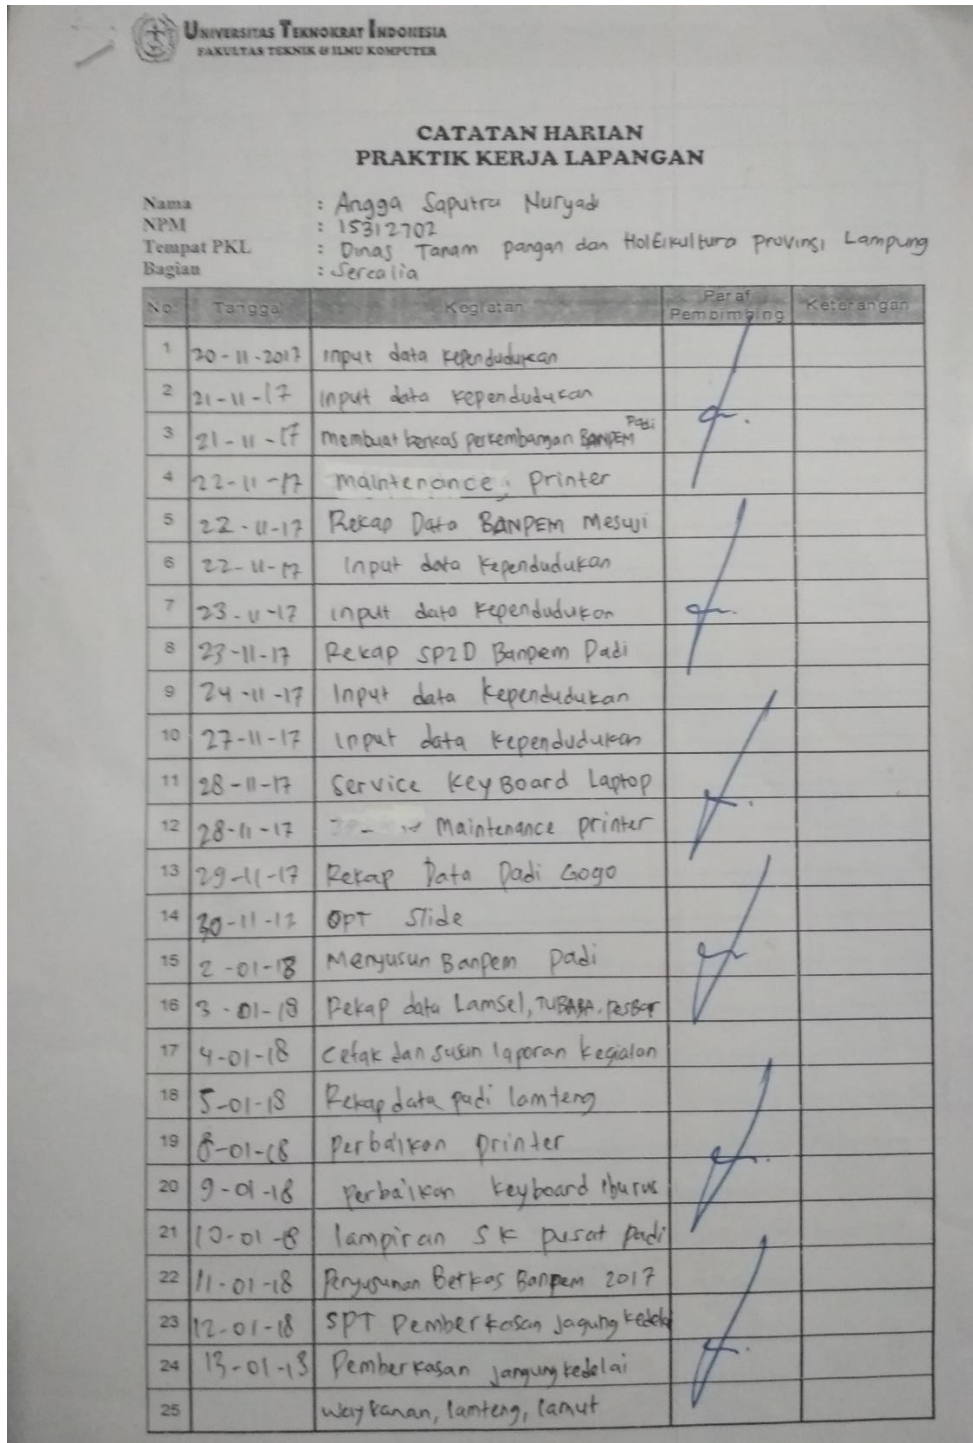 UNIVERSITAS TEKNOKRAT INDONESIA
FAKULTAS TEKNIK & ILMU KOMPUTER
CATATAN HARIAN
PRAKTIK KERJA LAPANGAN
Nama : Angga Saputra Nuryadi
NPM : 15312702
Tempat PKL : Dinas Tanam pangan dan Holtikultura Provinsi Lampung
Bagian : Serealia
No. Tanggal Kegiatan Paraf Pembimbing Keterangan
1 20-11-2017 Input data kependudukan
2 21-11-17 Input data kependudukan
3 21-11-17 Membuat berkas perkembangan BANPEM Padi
4 22-11-17 Maintenance printer
5 22-11-17 Rekap Data BANPEM Mesuji
6 22-11-17 Input data kependudukan
7 23-11-17 Input data kependudukan
8 23-11-17 Rekap SP2D Banpem Padi
9 24-11-17 Input data kependudukan
10 27-11-17 Input data kependudukan
11 28-11-17 Service Keyboard Laptop
12 28-11-17 Maintenance printer
13 29-11-17 Rekap Data Padi Gogo
14 30-11-17 OPT Slide
15 2-01-18 Menyusun Banpem Padi
16 3-01-18 Rekap data Lamsel, TUBABA, Pesbar
17 4-01-18 Cetak dan susun laporan kegiatan
18 5-01-18 Rekap data padi lamteng
19 8-01-18 Perbaikan printer
20 9-01-18 Perbaikan keyboard
21 10-01-18 lampiran SK pusat padi
22 11-01-18 Penyusunan Berkas Banpem 2017
23 12-01-18 SPT Pemberkasan jagung kedelai
24 13-01-18 Pemberkasan jangung kedelai
25 Way kanan, lamteng, lamut